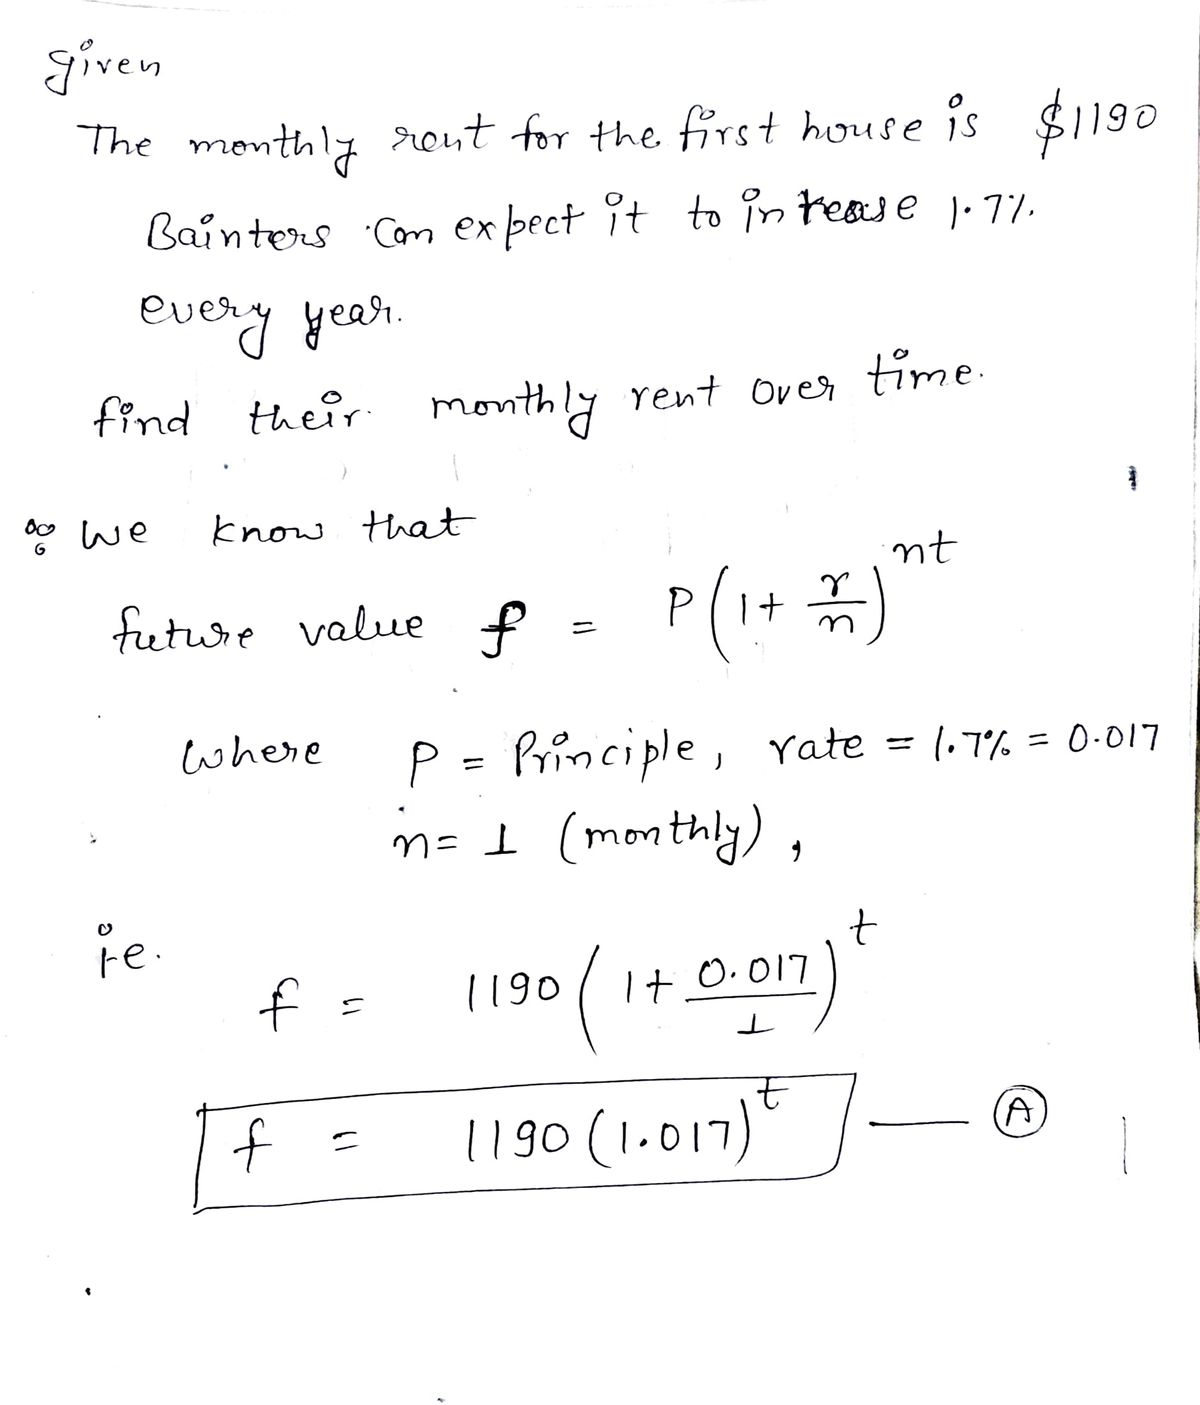 given
The monthly rent for the first house is $1190
Bainters can expect it to increase 1.7%
every year.
find their monthly rent over time.
∵ We know that
future value f = P(1 + r/n)^nt
where P = Principle, rate = 1.7% = 0.017
n = 1 (monthly),
ie.
f = 1190(1 + 0.017/1)^t
f = 1190(1.017)^t — Ⓐ